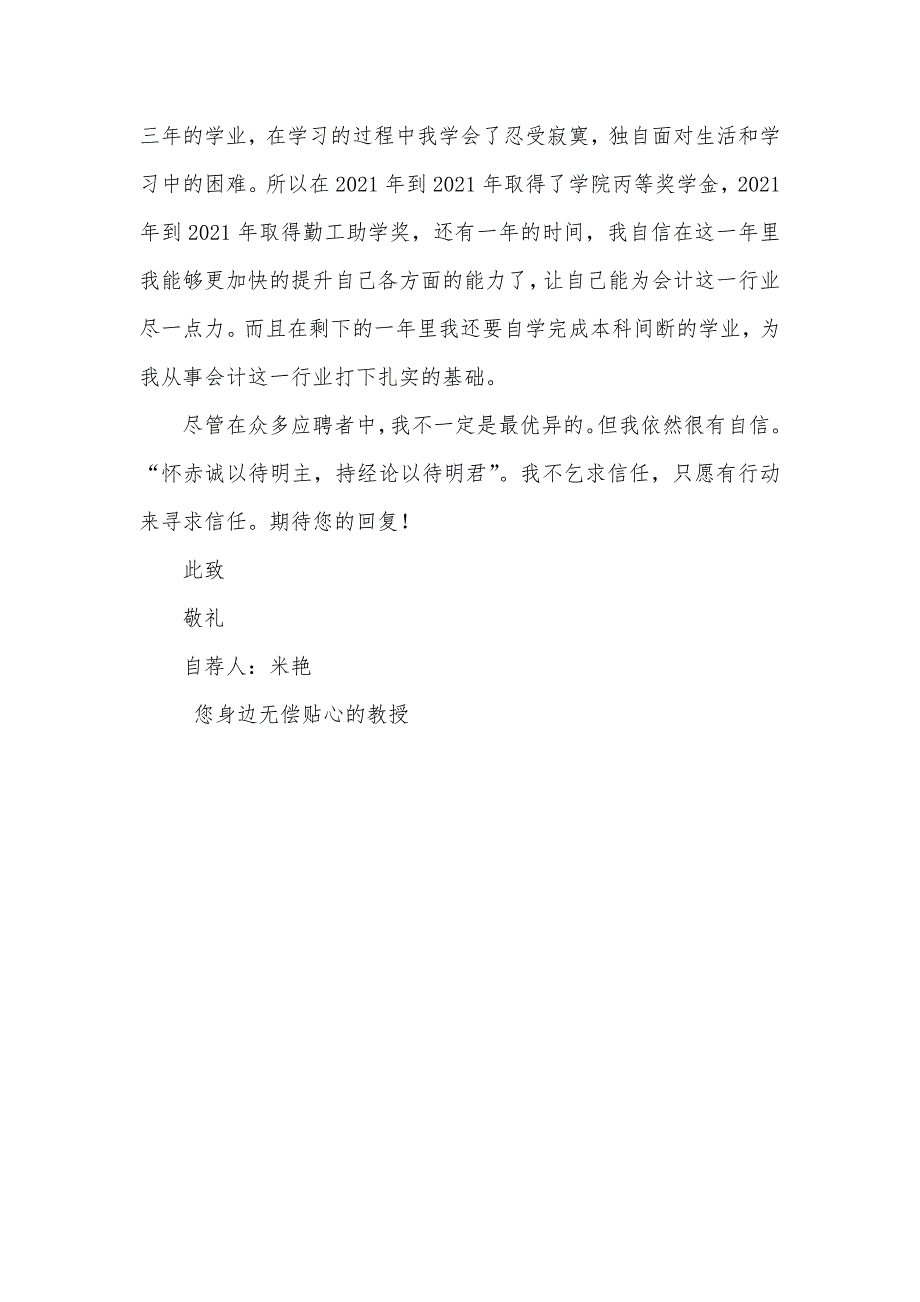 三年的学业，在学习的过程中我学会了忍受寂寞，独自面对生活和学
习中的困难。所以在 2021 年到 2021 年取得了学院丙等奖学金，2021
年到 2021 年取得勤工助学奖，还有一年的时间，我自信在这一年里
我能够更加快的提升自己各方面的能力了，让自己能为会计这一行业
尽一点力。而且在剩下的一年里我还要自学完成本科间断的学业，为
我从事会计这一行业打下扎实的基础。
尽管在众多应聘者中，我不一定是最优异的。但我依然很有自信。
“怀赤诚以待明主，持经论以待明君”。我不乞求信任，只愿有行动
来寻求信任。期待您的回复！
此致
敬礼
自荐人：米艳
您身边无偿贴心的教授